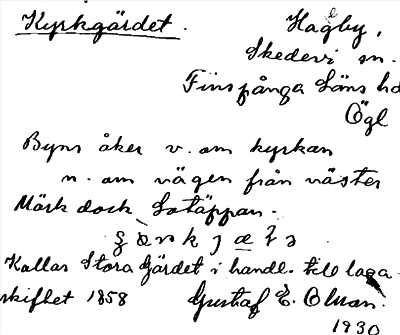 Kyrkgärdet. Hageby,
Skedevi sn.
Finspånga Läns hd
Ögl
Byns åker v. om kyrkan
n. om vägen från väster
Märk dock Lotäppan.
Kallas Stora Gärdet i handl. till laga
skiftet 1858 Gustaf E. Olsson.
1930